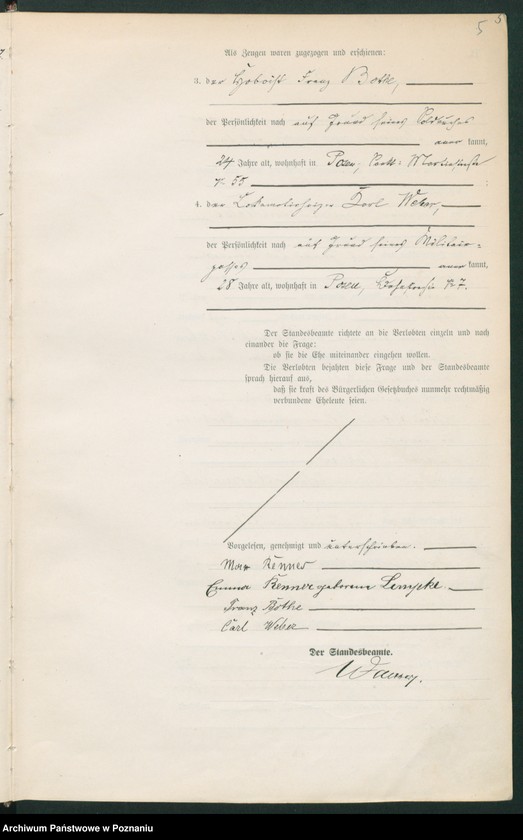 5 5
Als Zeugen waren zugezogen und erschienen:
3. der Hoboist Franz Bothe,
der Persönlichkeit nach auf Grund seines Soldbuches
kannt,
24 Jahre alt, wohnhaft in Posen, Sankt: Martinstraße
Nr. 55
4. der Lokomotivheizer Karl Weber,
der Persönlichkeit nach auf Grund seines Militair-
passes kannt,
28 Jahre alt, wohnhaft in Posen, № 7.
Der Standesbeamte richtete an die Verlobten einzeln und nach
einander die Frage:
ob sie die Ehe miteinander eingehen wollen.
Die Verlobten bejahten diese Frage und der Standesbeamte
sprach hierauf aus,
daß sie kraft des Bürgerlichen Gesetzbuches nunmehr rechtmäßig
verbundene Eheleute seien.
Vorgelesen, genehmigt und unterschrieben.
Max Renner
Emma Renner geborene Lempke
Franz Bothe
Carl Weber
Der Standesbeamte.
Archiwum Państwowe w Poznaniu